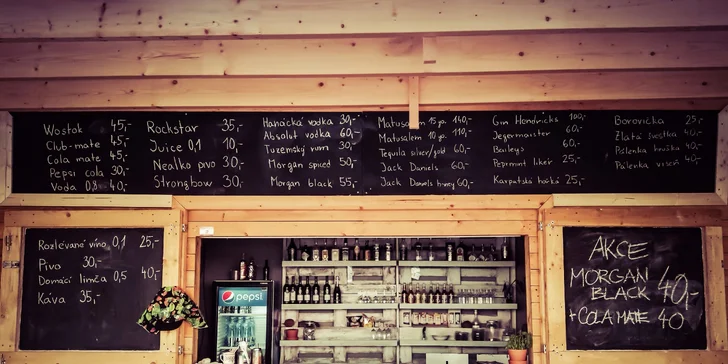 Wostok 45,-
Club-mate 45,-
Cola mate 45,-
Pepsi cola 30,-
Voda 0,8 40,-
Rockstar 35,-
Juice 0,1 10,-
Nealko pivo 30,-
Strongbow 30,-
Hanácká vodka 30,-
Absolut vodka 60,-
Tuzemský rum 30,-
Morgan spiced 50,-
Morgan black 55,-
Matusalem 15 yo. 140,-
Matusalem 10 yo. 110,-
Tequila silver/gold 60,-
Jack Daniels 60,-
Jack Daniels honey 60,-
Gin Hendricks 100,-
Jegermaister 60,-
Baileys 60,-
Pepermint likér 25,-
Karpatská hořká 25,-
Borovička 25,-
Zlatá švestka 40,-
Pálenka hruška 40,-
Pálenka višeň 40,-
Rozlévané víno 0,1 25,-
Pivo 30,-
Domácí limča 0,5 40,-
Káva 35,-
pepsi
AKCE
MORGAN
BLACK 40,-
+ COLA MATE 40